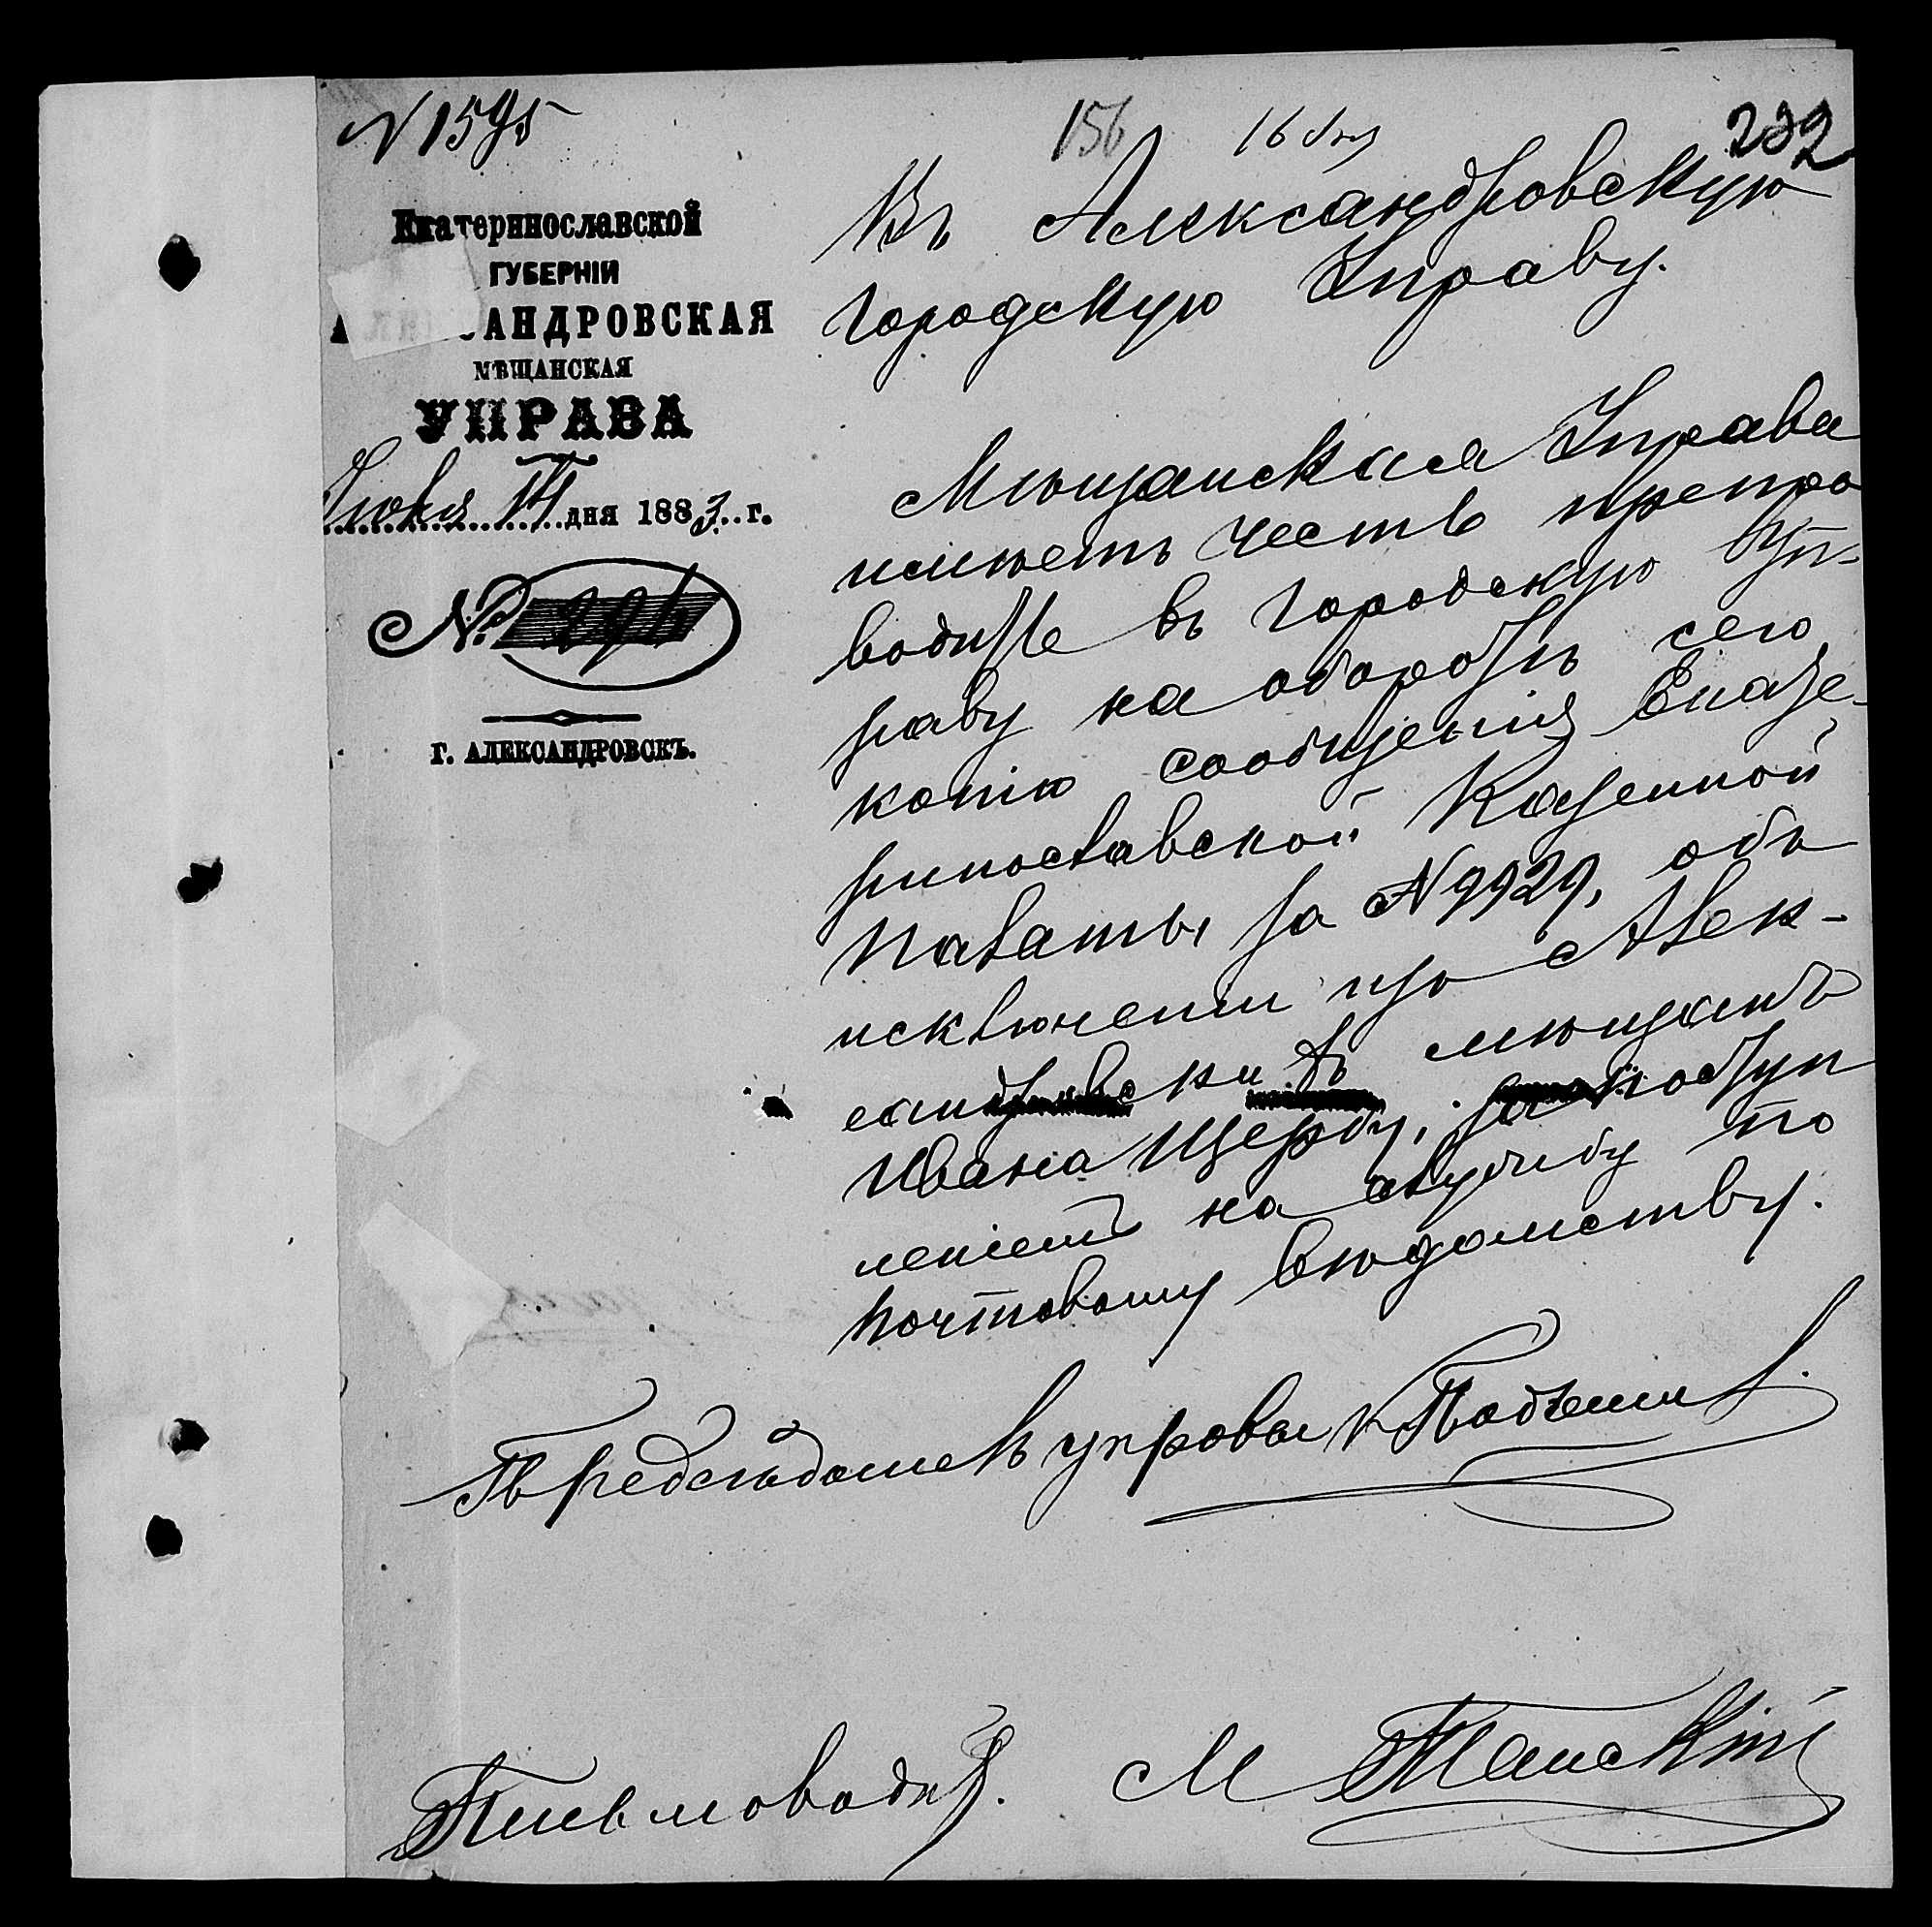 N 1595
156
232
Екатеринославской
ГУБЕРНІИ
АЛЕКСАНДРОВСКАЯ
МѢЩАНСКАЯ
УПРАВА
Іюня 14 дня 1883 г.
№ 294
Г. АЛЕКСАНДРОВСКЪ.
Въ Александровскую
Городскую Управу.
Мѣщанская Управа
имѣетъ честь препро
водить въ Городскую Уп-
раву на оборотѣ сего
копію сообщенія Екате-
ринославской Казенной
Палаты за N 9929, объ
исключеніи изъ Алек-
сандровскихъ мѣщанъ
Ивана Щербу, за поступ
леніемъ на службу по
почтовому вѣдомству.
Предсѣдатель управы
Письмоводит. М